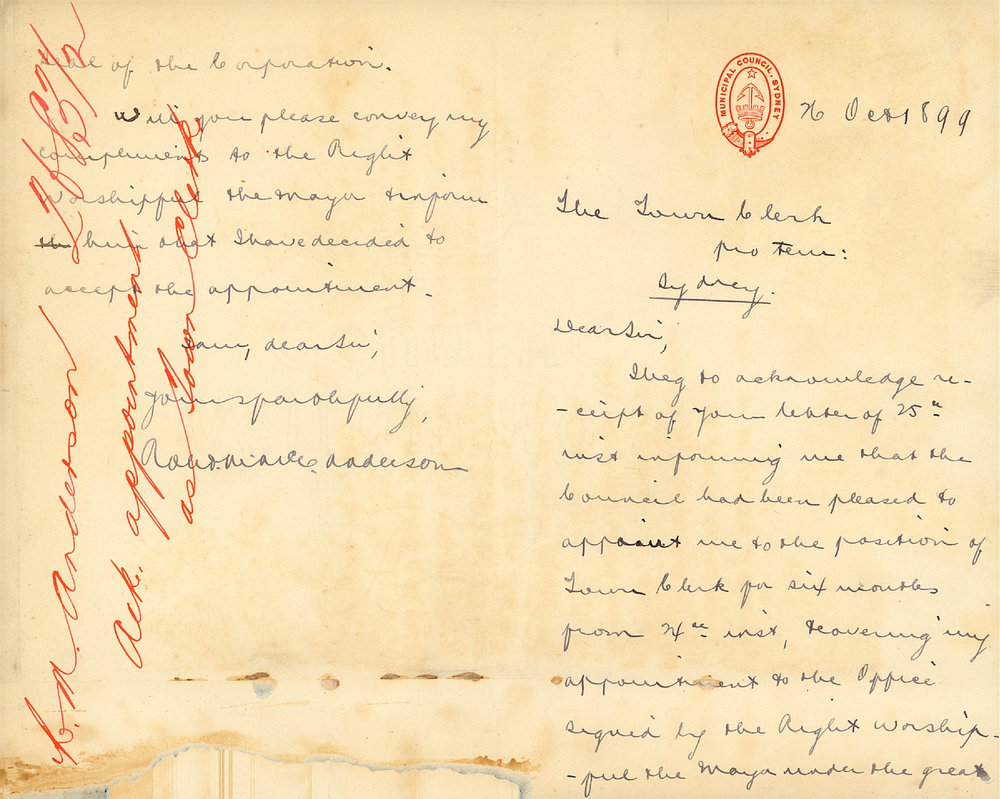 MUNICIPAL COUNCIL. SYDNEY
26 Oct 1899
The Town Clerk
pro tem:
Sydney.
Dear Sir,
I beg to acknowledge re-
-ceipt of your letter of 25th
inst informing me that the
Council had been pleased to
appoint me to the position of
Town Clerk for six months
from 24th inst, & covering my
appointment to the Office
signed by the Right Worship-
-ful the Mayor under the great
Seal of the Corporation.
Will you please convey my
compliments to the Right
Worshipful the Mayor & inform
him that I have decided to
accept the appointment.
I am, dear Sir,
Yours faithfully,
Anderson
Anderson
Ack. appointment
as Town Clerk